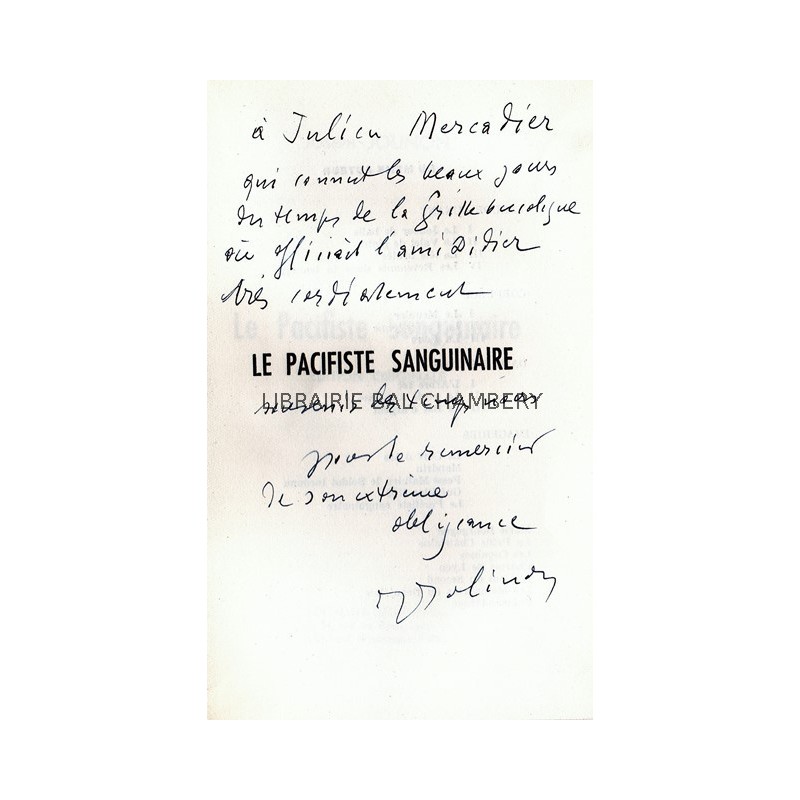 à Julien Mercadier
qui connut les beaux jours
du temps de la Grille bucolique
où officiait l'ami Didier
très cordialement
LE PACIFISTE SANGUINAIRE
LIBRAIRIE BAL CHAMBERY
pour le remercier
de son extrême
obligeance